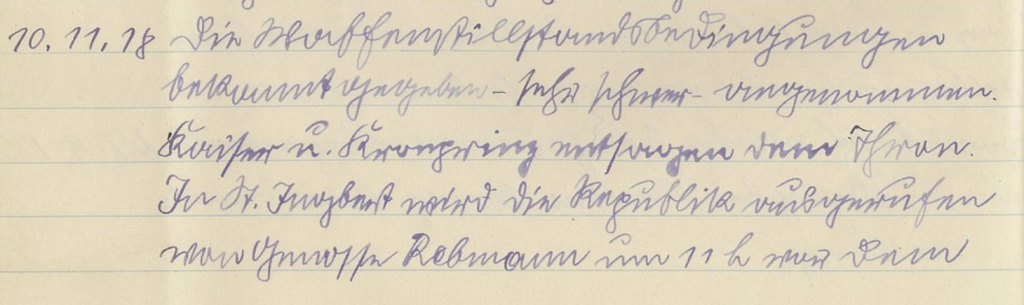 10.11.18 Die Waffenstillstandsbedingungen
bekannt gegeben - sehr schwer - angenommen.
Kaiser u. Kronprinz entsagen dem Thron.
In St. Ingbert wird die Republik ausgerufen
von Genosse Rebmann um 11 h vor dem